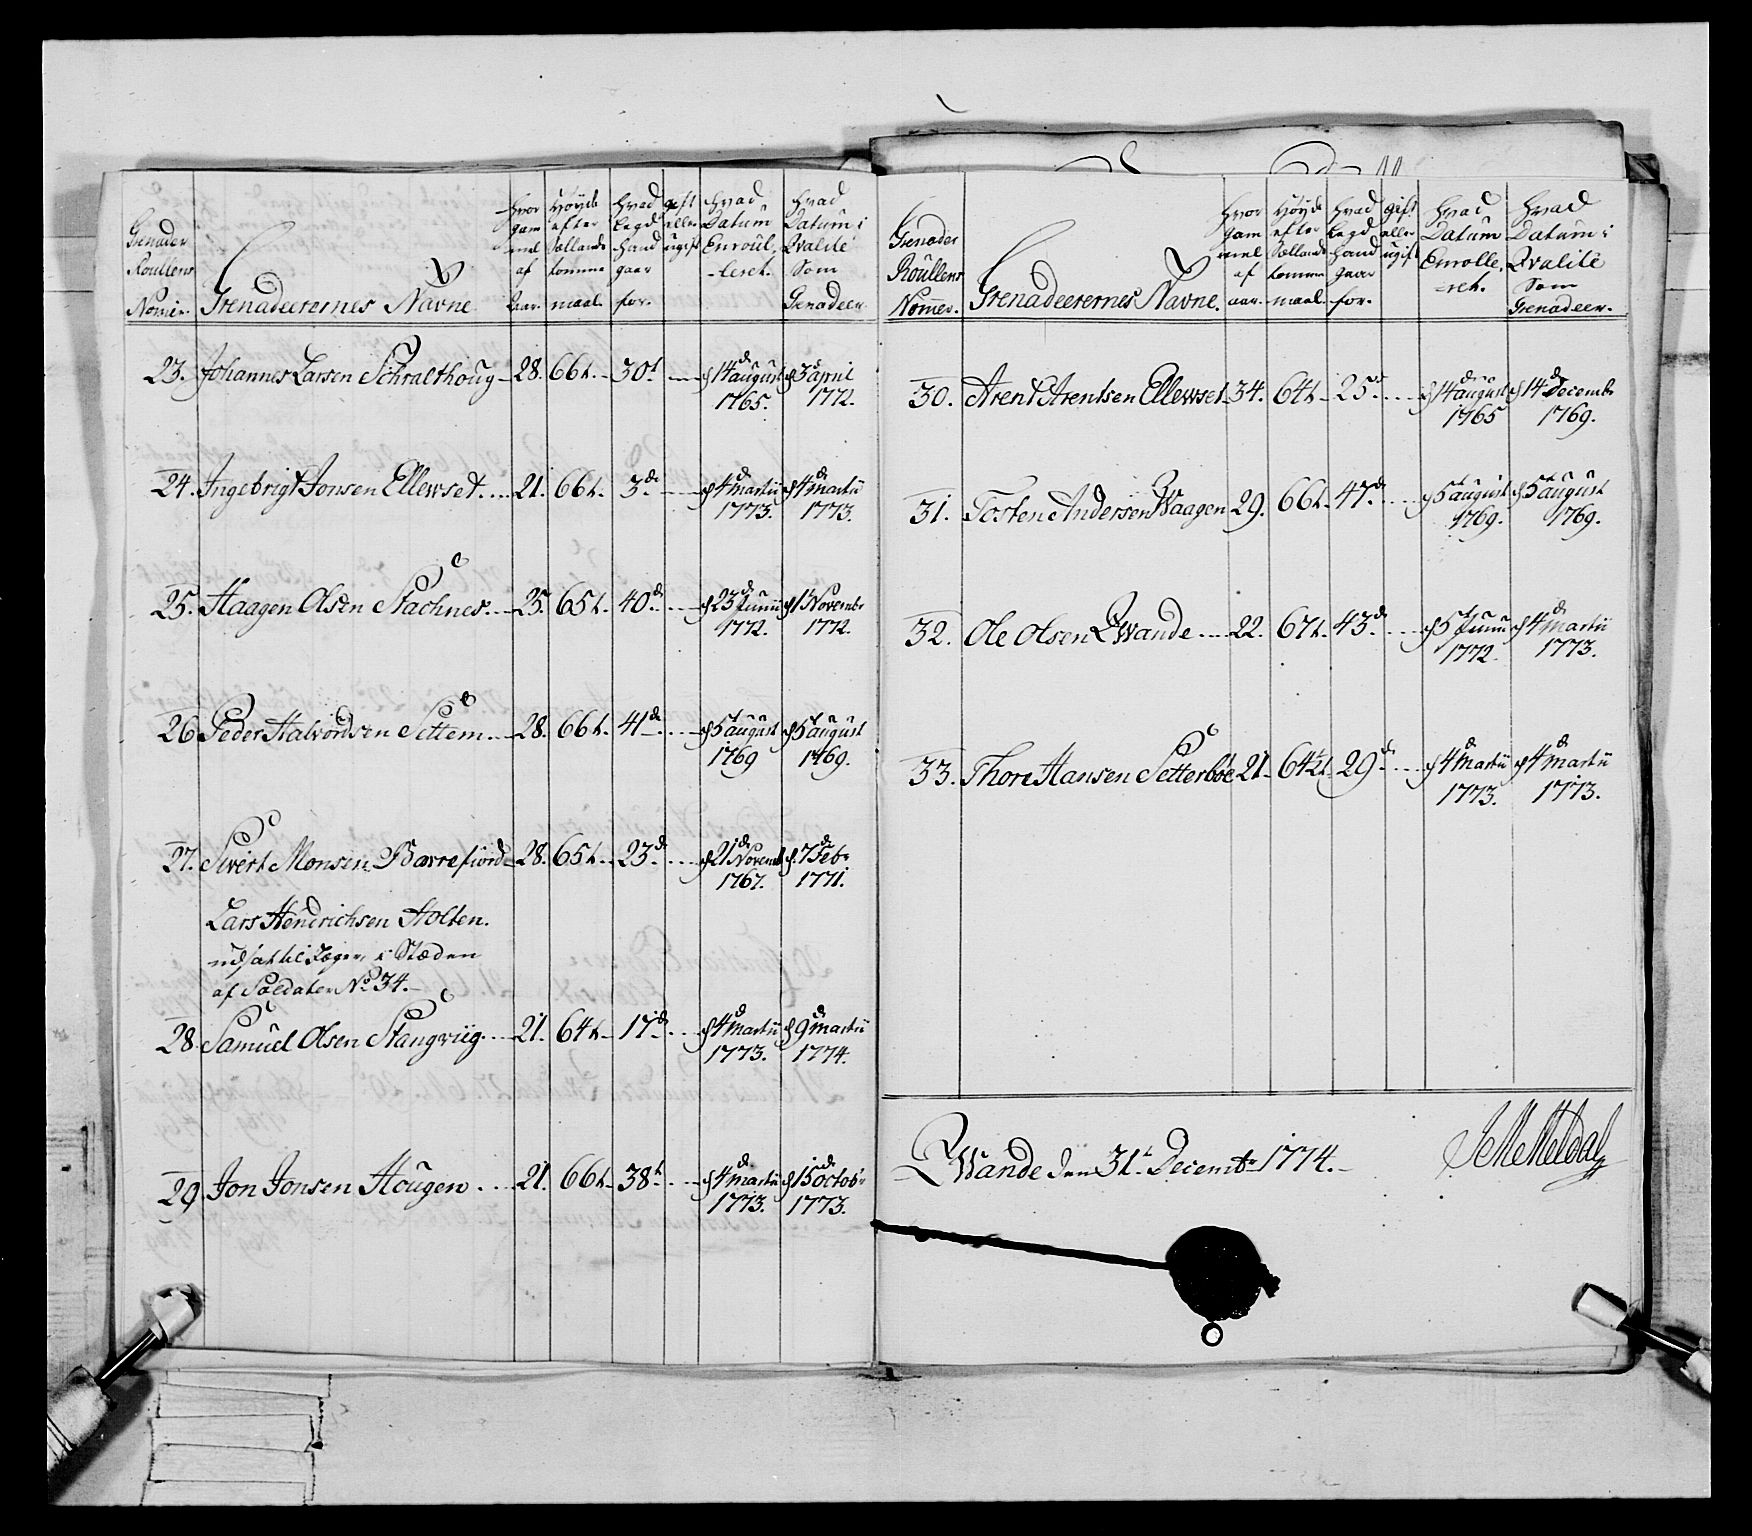 Grenader Roullens Nomer.
Grenadeerernes Navne
Hvor gammel af Aar.
Høyde efter Sællands tomme maal
Hvad Legd Hand gaar for.
gift eller ugift
Hvad Datum Enroulleret.
Hvad Datum i Qvalité Som Grenadeer
23. Johannes Larsen Schralthoug 28. 66t. 30t d 14d august 1765. d 3d april 1772.
24. Ingebrigt Jonsen Ellewset 21. 66t. 3de d 4de Martii 1773. d 4de Martii 1773.
25. Haagen Olsen Stachnes 25. 65t. 40de d 23d Junii 1772. d 1t Novembr 1772.
26 Peder Halvordsen Settem 28. 66t. 41de d 5t august 1769 d 5t august 1769.
27. Sivert Monsen Bærrefiord 28. 65t. 23d d 21d Novemb 1767. d 7d Febr 1771.
Lars Hendrichsen Holten.
udsat til Jæger, i Stæden
af Soldater No 34.
28. Samuel Olsen Stangviig 21. 64t 17de d 4d Martii 1773. d 9d Martii 1774.
29 Jon Jonsen Hougen 21. 66t 38t d 4d Martii 1773. d 15d octobr 1773.
Grenader Roullens Nomer.
Grenadeerernes Navne.
Hvor gammel af aar.
Høyde efter Sællands tomme maal
Hvad Legd Hand gaar for.
gift eller ugift
Hvad Datum Enrolleret.
Hvad Datum i Qvalité Som Grenadeer.
30. Arent Arentsen Ellewset 34. 64t 25de d 14d august 1765 d 14d Decembr 1769.
31. Tosten Andersen Waagen 29. 66t 47de d 5t august 1769. d 5t august 1769.
32. Ole Olsen Qwande 22. 67t. 43de d 5t Junii 1772. d 4de Martii 1773.
33. Thore Hansen Setterbøe 21 64½t 29de d 4d Martii 1773. d 4d Martii 1773.
Qwande den 31t Decembr 1774.